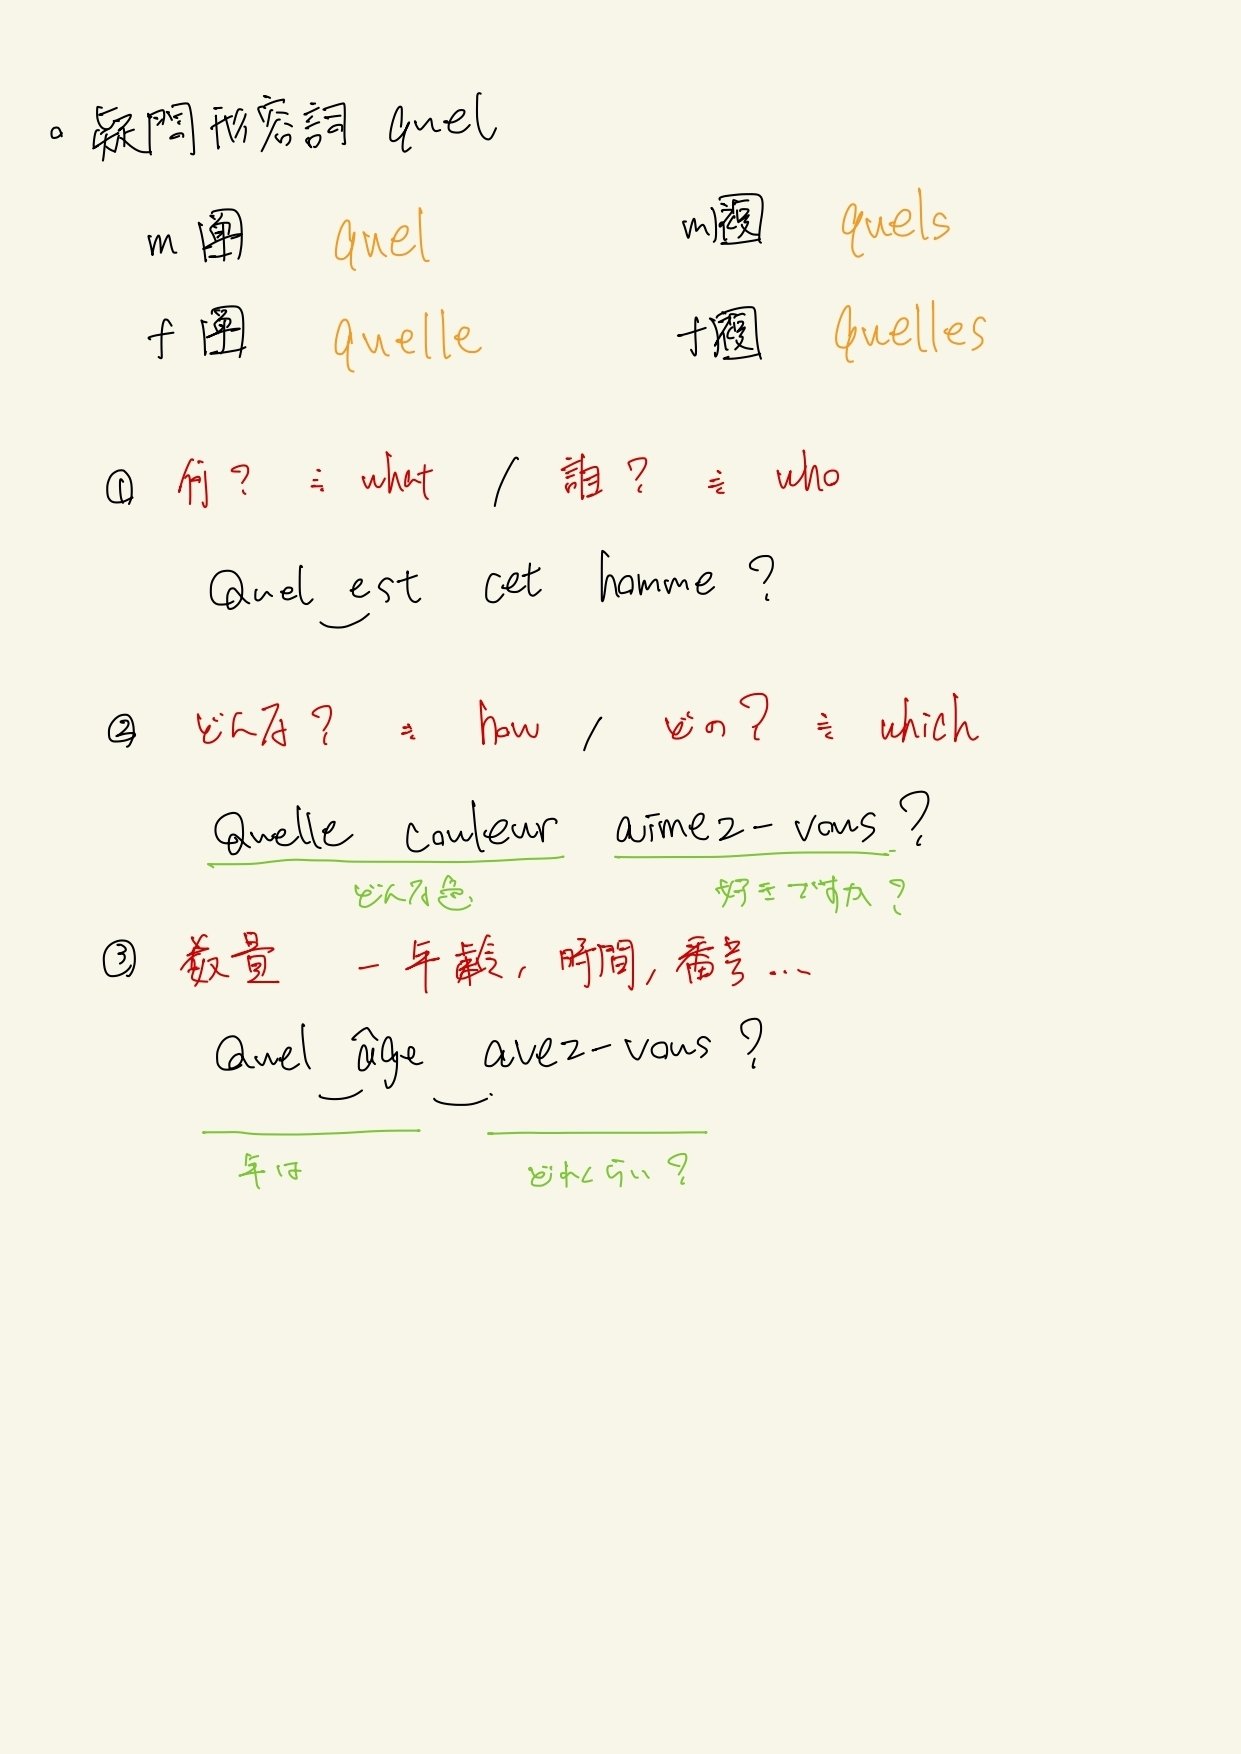 。疑問形容詞 quel
m 単 quel m 複 quels
f 単 quelle f 複 quelles
① 何? ≒ what / 誰? ≒ who
Quel est cet homme ?
② どんな? ≒ how / どの? ≒ which
Quelle couleur aimez-vous ?
どんな色 好きですか?
③ 数量 - 年齢, 時間, 番号...
Quel âge avez-vous ?
年は どれくらい?